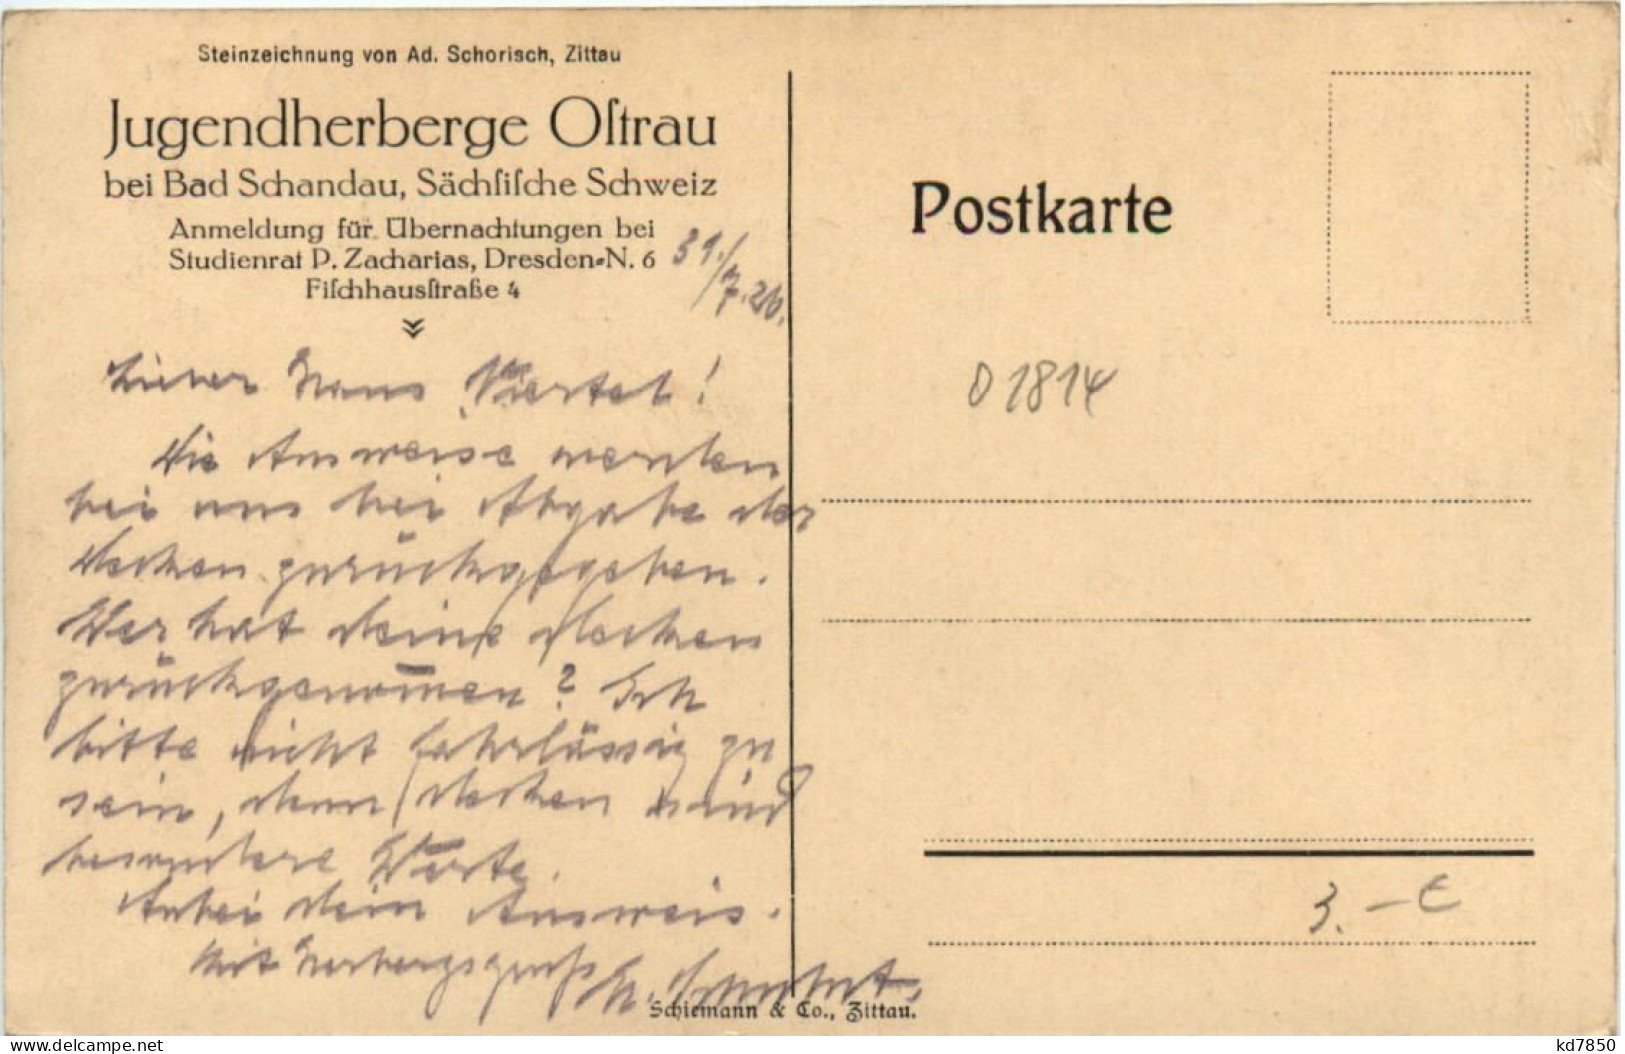 Steinzeichnung von Ad. Schorisch, Zittau
Jugendherberge Oſtrau
bei Bad Schandau, Sächſiſche Schweiz
Anmeldung für Übernachtungen bei
Studienrat P. Zacharias, Dresden-N. 6
Fiſchhausſtraße 4
31./7.26.
Lieber Hans Viertel!
Die Ausweise werden
bei uns bei Abgabe der
Decken zurückgegeben.
Wer hat deine Decken
zurückgenom̄en? Ich
bitte nicht fahrlässig zu
sein, denn Decken sind
besondere Werte.
Anbei dein Ausweis.
Mit Herbergsgruß
Schiemann & Co., Zittau.
Postkarte
01814
3.-€
kd7850
delcampe.net